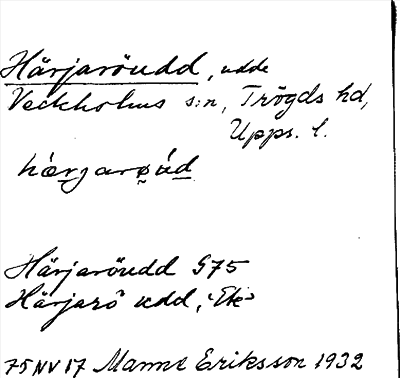 Härjaröudd, udde
Veckholms s:n, Trögds hd,
Upps. l.
hǽrjarø̰úd
Härjaröudd G75
Härjarö udd, "Ek"
75 NV 17 Manne Eriksson 1932